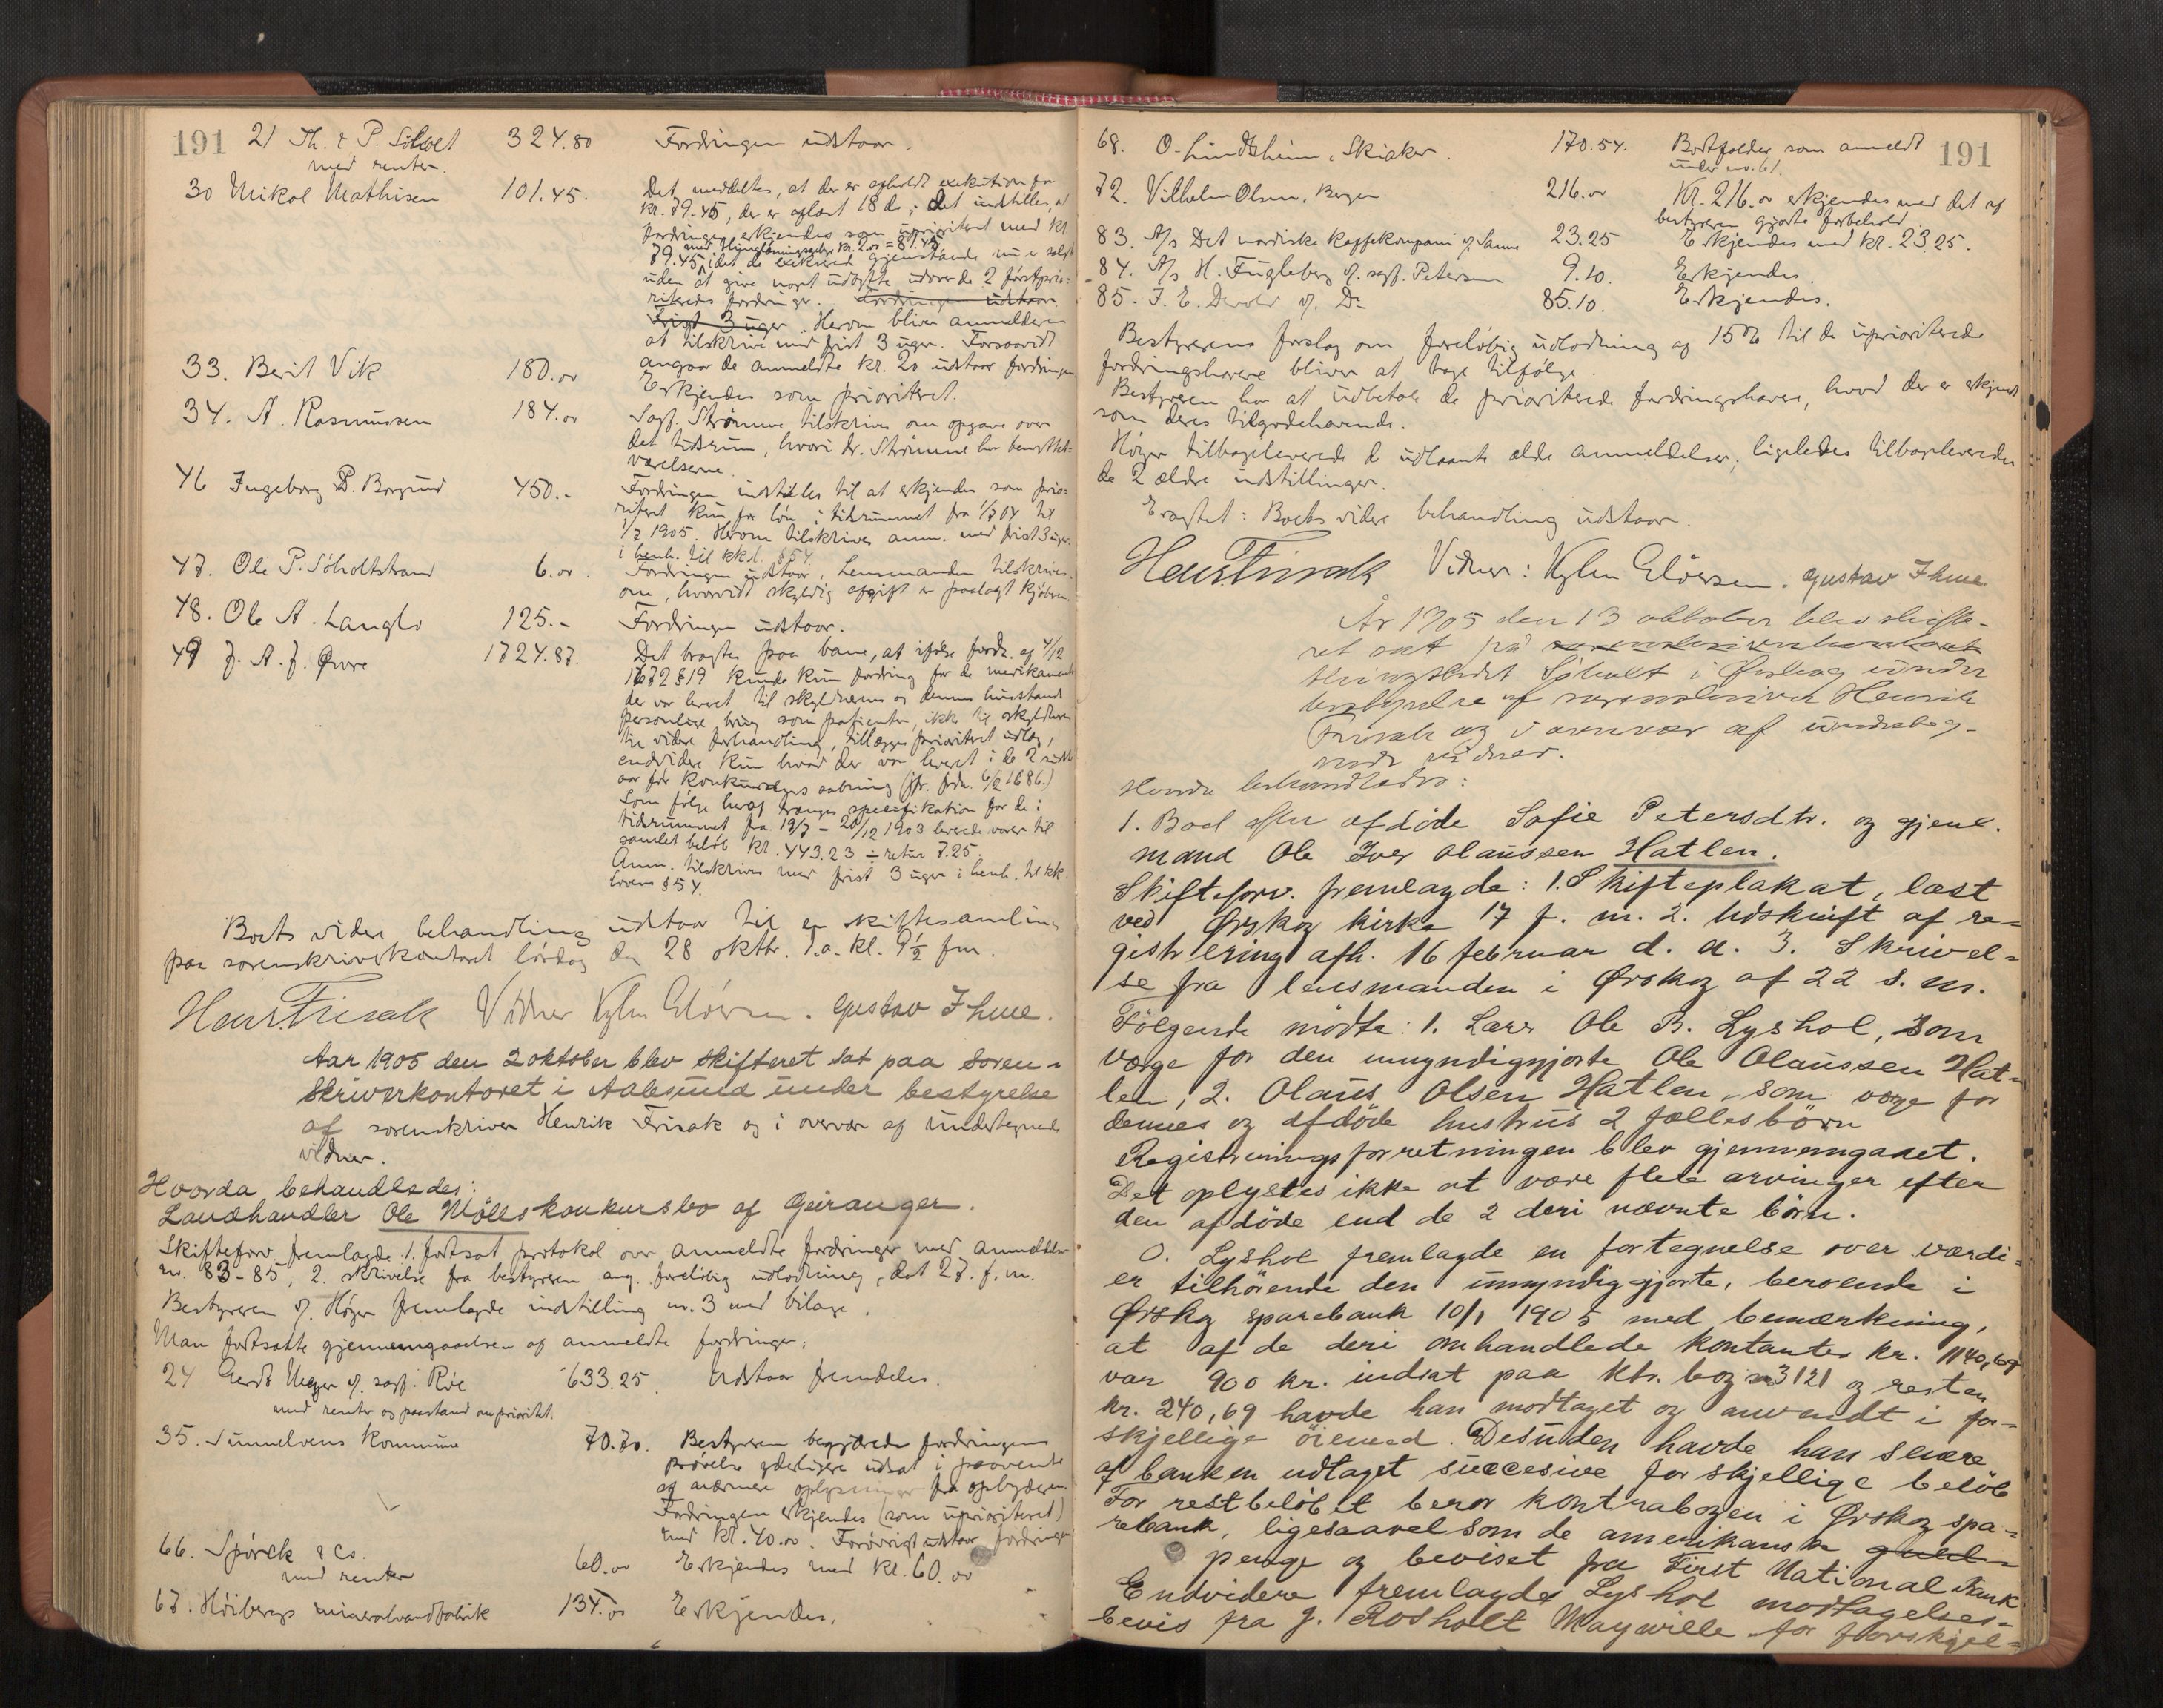 191 21 Th. & P. Sölvet 324.80 Fordringen udstaar.
med renter.
30 Nikol Mathisen 101.45. Det meddeltes, at der er afholdt exekution for
kr. 79.45, der er aflæst 18 ds; det indstilles, at
fordringen erkjendes som uprioriteret med kr
79.45, idet de exekverede gjenstande nu er solgt
uden at give noget udbytte udover de 2 førstprio-
riterede fordringer. Fordringen udstaar
Frist 3 uger. Herom bliver anmelderen
at tilskrive med frist 3 uger. Forsaavidt
angaar de anmeldte kr. 20 udstaar fordringen
33. Berit Vik 180.00 Erkjendes som prioriteret.
34. A. Rasmussen 184.00 Sagf. Strømme tilskrives om opgave over
det tidsrum, hvori hr. Strømme har benyttet
værelserne.
46 Ingeborg P. Borgund 450.- Fordringen indstilles til at erkjendes som prio-
riteret kun for løn i tidsrummet fra 1/7 04 til
1/7 1905. Herom tilskrives anm. med frist 3 uger
i henh. til kkl. § 54.
47. Ole P. Søholtstrand 6.00. Fordringen udstaar, Lensmanden tilskrives
om, hvorvidt skyldig afgift er paalagt kjøberen
48. Ole A. Langlo 125.- Fordringen udstaar.
49 J. A. J. Øvre 1724.87. Det bragtes paa bane, at ifølge fordn. af 4/12
1672 § 19 kunde kun fordring for de medikamenter
der var leveret til skyldneren og dennes husstand
personlige brug som patienter, ikke til skyldneren
til videre forhandling, tillægges prioriteret udlæg,
endvidere kun hvad der var leveret i de 2 sidste
aar før konkursens aabning (jfr. frdn. 6/2 1686.)
Som følge heraf trænges specifikation for de i
tidsrummet fra 19/7 - 20/12 1903 leverede varer til
samlet beløb kr. 443.23 ÷ retur 7.25.
Anm. tilskrives med frist 3 uger i henh. til kk.
lovens § 54.
Boets videre behandling udstaar til en skiftesamling
paa sorenskriverkontoret lørdag den 28 oktbr. d.a. kl. 9½ fm.
Henr. Frisak Vidner Gustav Ihme.
Aar 1905 den 2 oktober blev skifteret sat paa soren-
skriverkontoret i Aalesund under bestyrelse
af sorenskriver Henrik Frisak og i overvær af undertegnede
vidner.
Hvorda behandledes:
Landhandler Ole Mølls konkursbo af Geiranger.
Skifteforv. fremlagde 1. fortsat protokol over anmeldte fordringer med anmeldelser
nr. 83-85, 2. skrivelse fra bestyreren ang. foreløbig udlodning, dat 27. f.m.
Bestyreren v/. Høyer fremlagde indstilling nr. 3 med bilage.
Man fortsatte gjennemgaaelsen af anmeldte fordringer:
24 Gerdt Meyer v/. sagf. Röe 633.25. Udstaar fremdeles.
med renter og paastand om prioritet.
35. Sunnelvens kommune 70.70. Bestyreren begjærede fordringens
prøvelse yderligere udsat i paavente
af nærmere oplysninger fra opbyderen
Fordringen erkjendes (som uprioriteret)
med kr. 40.00. Forøvrigt udstaar fordringen
66. Spörck & Co. 60.00 Erkjendes med kr. 60.00
med renter
67. Höibergs mineralvandfabrik 134.00 Erkjendes.
68. O. Lindsheim, Skiaker. 170.54. Bortfalder som anmeldt 191
under no. 61.
72. Vilhelm Olsen, Bergen 216.00 Kr. 216.00 erkjendes med det af
bestyreren gjorte forbehold
83. A/s Det nordiske kaffekompani v/ Samme 23.25 Erkjendes med kr. 23.25.
84. A/s H. Fugleberg v/. sagf. Petersen 9.10. Erkjendes.
85. J. E. Devold v/. Do 85.10. Erkjendes.
Bestyrerens forslag om foreløbig udlodning af 15 % til de uprioriterede
fordringshavere bliver at tage tilfølge.
Bestyreren har at udbetale de prioriterede fordringshavere, hvad der er erkjendt
som deres tilgodehavende.
Høyer tilbageleverede de udlaante ældre anmeldelser, ligeledes tilbageleveredes
de 2 ældre indstillinger.
Eragtet: Boets videre behandling udstaar.
Henr Frisak Vidner: Gustav Ihme
År 1905 den 13 oktober blev skifte-
ret sat på sorenskriverkontoret
thingstedet Søholt i Ørskog under
bestyrelse af sorenskriver Henrik
Frisak og i overvær af undertegn-
ede vidner.
Hvorda behandledes:
1. Boet efter afdöde Sofie Petersdtr. og gjenl.
mand Ole Iver Olaussen Hatlen.
Skifteforv. fremlagde: 1. Skifteplakat, læst
ved Ørskog kirke 17 f. m. 2. Udskrift af re-
gistrering afh. 16 februar d. a. 3. Skrivel-
se fra lensmanden i Ørskog af 22 s. m.
Følgende mödte: 1. Lærer Ole B. Lyshol, som
værge for den umyndiggjorte Ole Olaussen Hat-
len, 2. Olaus Olsen Hatlen, som værge for
dennes og afdöde hustrus 2 fællesbörn
Registreringsforretningen blev gjennemgaaet.
Det oplystes ikke at være flere arvinger efter
den afdöde end de 2 deri nævnte börn.
O. Lyshol fremlagde en fortegnelse over værdi-
er tilhörende den umyndiggjorte, beroende i
Ørskog sparebank 10/1 1905 med bemærkning,
at af de deri omhandlede kontanter kr. 1140,69
var 900 kr. indsat paa ktr. bog n 3121 og resten
kr. 240,69 havde han modtaget og anvendt i for-
skjellige öiemed. Desuden havde han senere
af banken udtaget succesive forskjellige belöb
For restbelöbet beror kontrabogen i Ørskog spa-
rebank, ligesaavel som de amerikanske guld-
penge og beviset fra First National Bank
Endvidere fremlagde Lyshol modtagelses-
bevis fra J. Rosholt Maywille for forskjel-